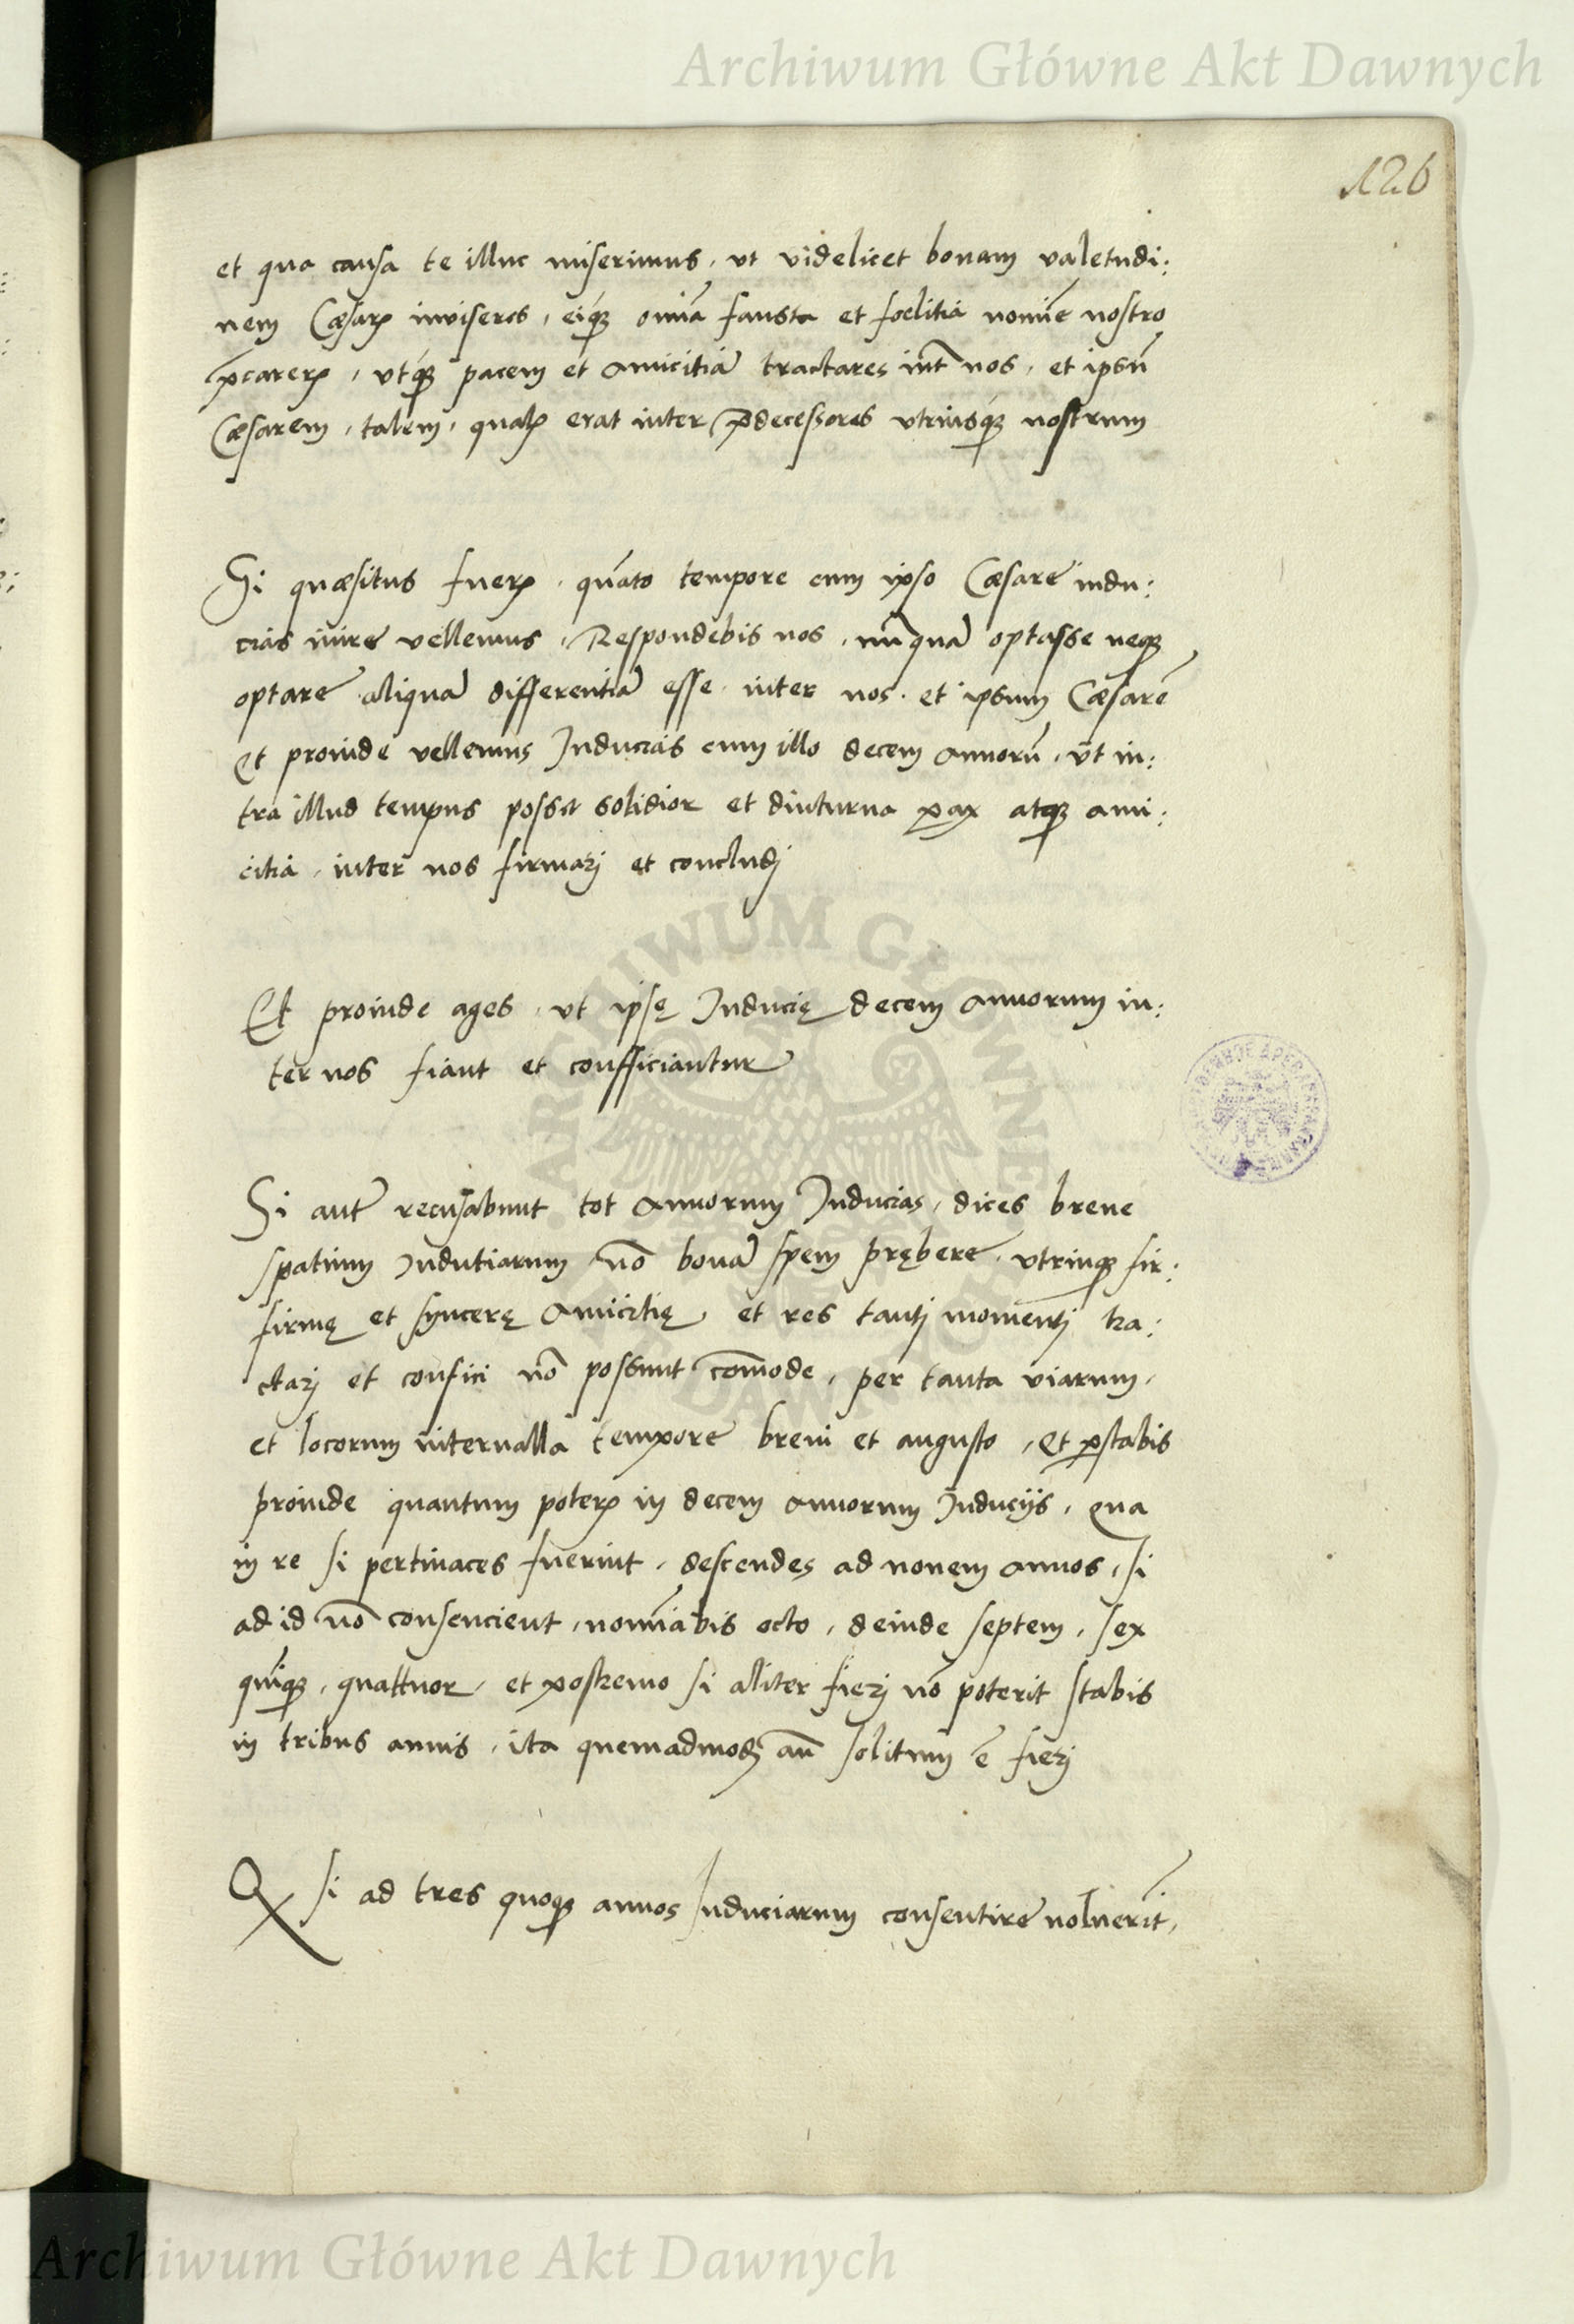 Archiwum Główne Akt Dawnych
126
et qua causa te illuc miserimus, ut videlicet bonam valetudi:
nem Cæsarꝭ inviseres, eiqꝫ omīa fausta et foelitia nomīe nostro
p̄carerꝭ, utqꝫ pacem et amicitiā tractares int̄ nos, et ipsū
Cæsarem, talem, qualꝭ erat inter p̄decessores utriusqꝫ nostrum
Si quæsitus fuerꝭ, quāto tempore cum ipso Cæsare indu:
cias inire vellemus, Respondebis nos, nūquā optasse neqꝫ
optare aliquā differentiā esse inter nos et ipsum Cæsarē
Et proinde vellemus Inducias cum illo decem annorū, ut in:
tra illud tempus possit solidior et diuturna pax atqꝫ ami:
citia, inter nos firmarj et concludj
Et proinde ages, ut ipsę Inducię decem annorum in:
ter nos fiant et confficiantur
Si autē recusabunt tot annorum Inducias, dices breve
spatium Indutiarum nō bonā spem prębere, utrinqꝫ fir:
firmę et syncerę amicitię, et res tantj momentj tra:
ctarj et confici nō possunt com̄ode, per tanta viarum,
et locorum intervalla tempore brevi et angusto, Et p̱stabis
proinde quantum poterꝭ in decem annorum Inducijs, Qua
in re si pertinaces fuerint, descendes ad novem annos, si
ad id nō consencient, nomīabis octo, deinde septem, sex
quīqꝫ, quattuor, et postremo si aliter fierj nō poterit stabis
in tribus annis, ita quemadmodꝫ an̄ solitum ē fierj
Qꝫ si ad tres quoqꝫ annos Induciarum consentire noluerīt,
ARCHIWUM GŁÓWNE AKT DAWNYCH
Archiwum Główne Akt Dawnych